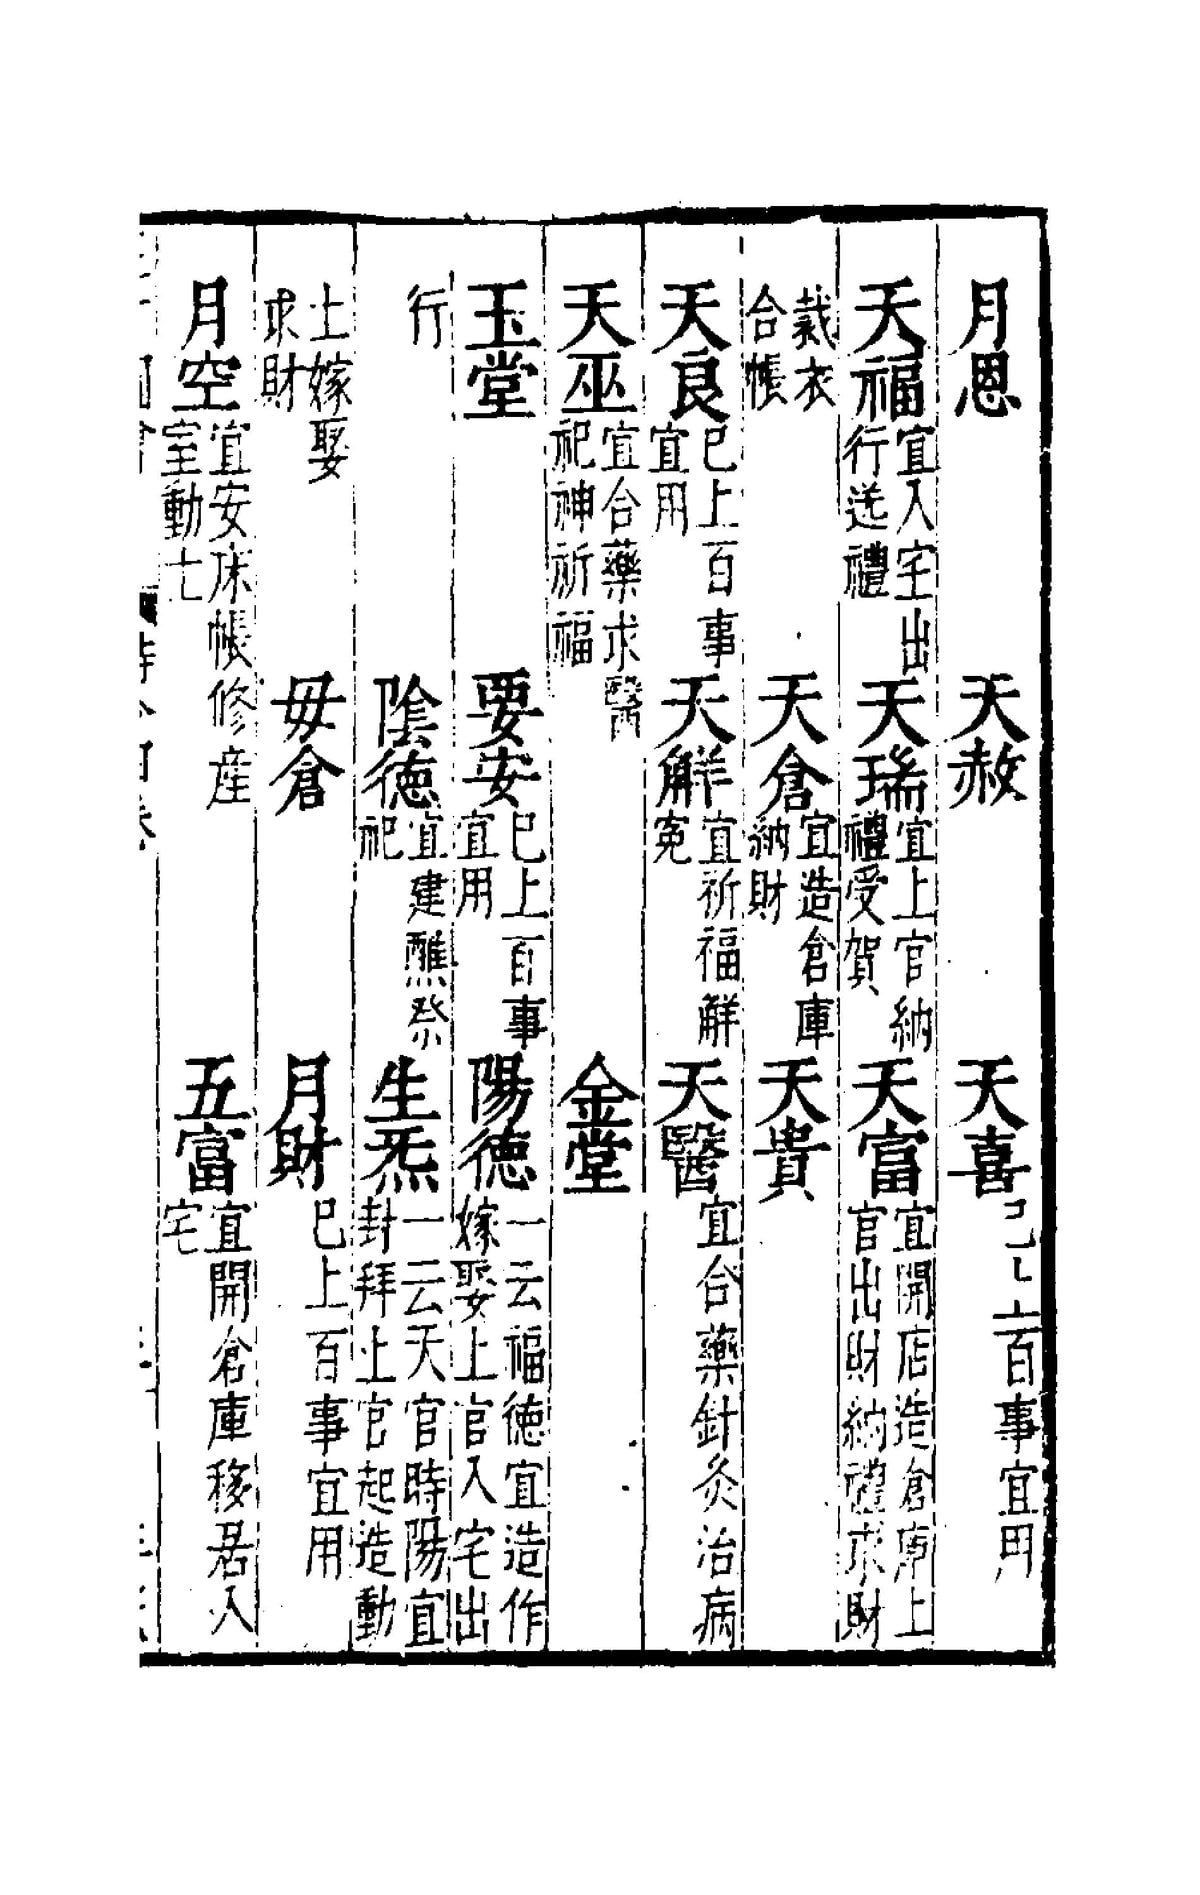 月恩　天赦　天喜已上百事宜用
天福宜入宅出行送禮　天瑞宜上官納禮受賀　天富宜開店造倉庫上官出財納禮求財
裁衣合帳　天倉宜造倉庫納財　天貴
天良已上百事宜用　天解宜祈福解冤　天醫宜合藥針灸治病
天巫宜合藥求醫祀神祈福　金堂
玉堂　要安已上百事宜用　陽德一云福德宜造作嫁娶上官入宅出
行　陰德宜建醮祭祀　生炁一云天官時陽宜封拜上官起造動
上嫁娶求財　毋倉　月財已上百事宜用
月空宜安床帳修産室動七　五富宜開倉庫移居入宅